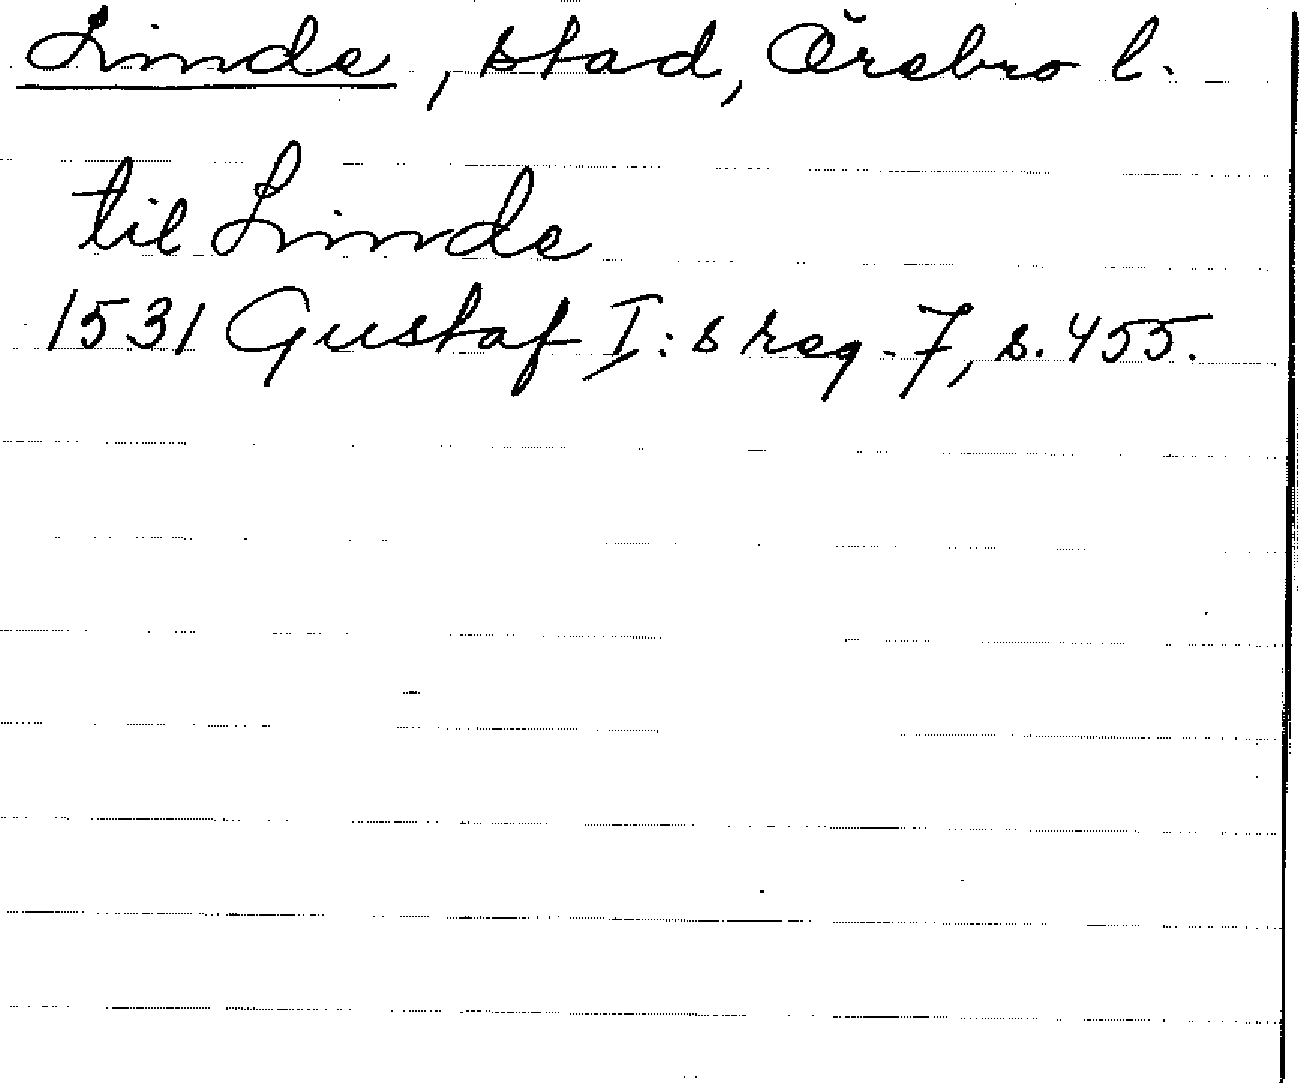 Linde, stad, Örebro l.
til Linde
1531 Gustaf I:s reg. 7, s. 455.